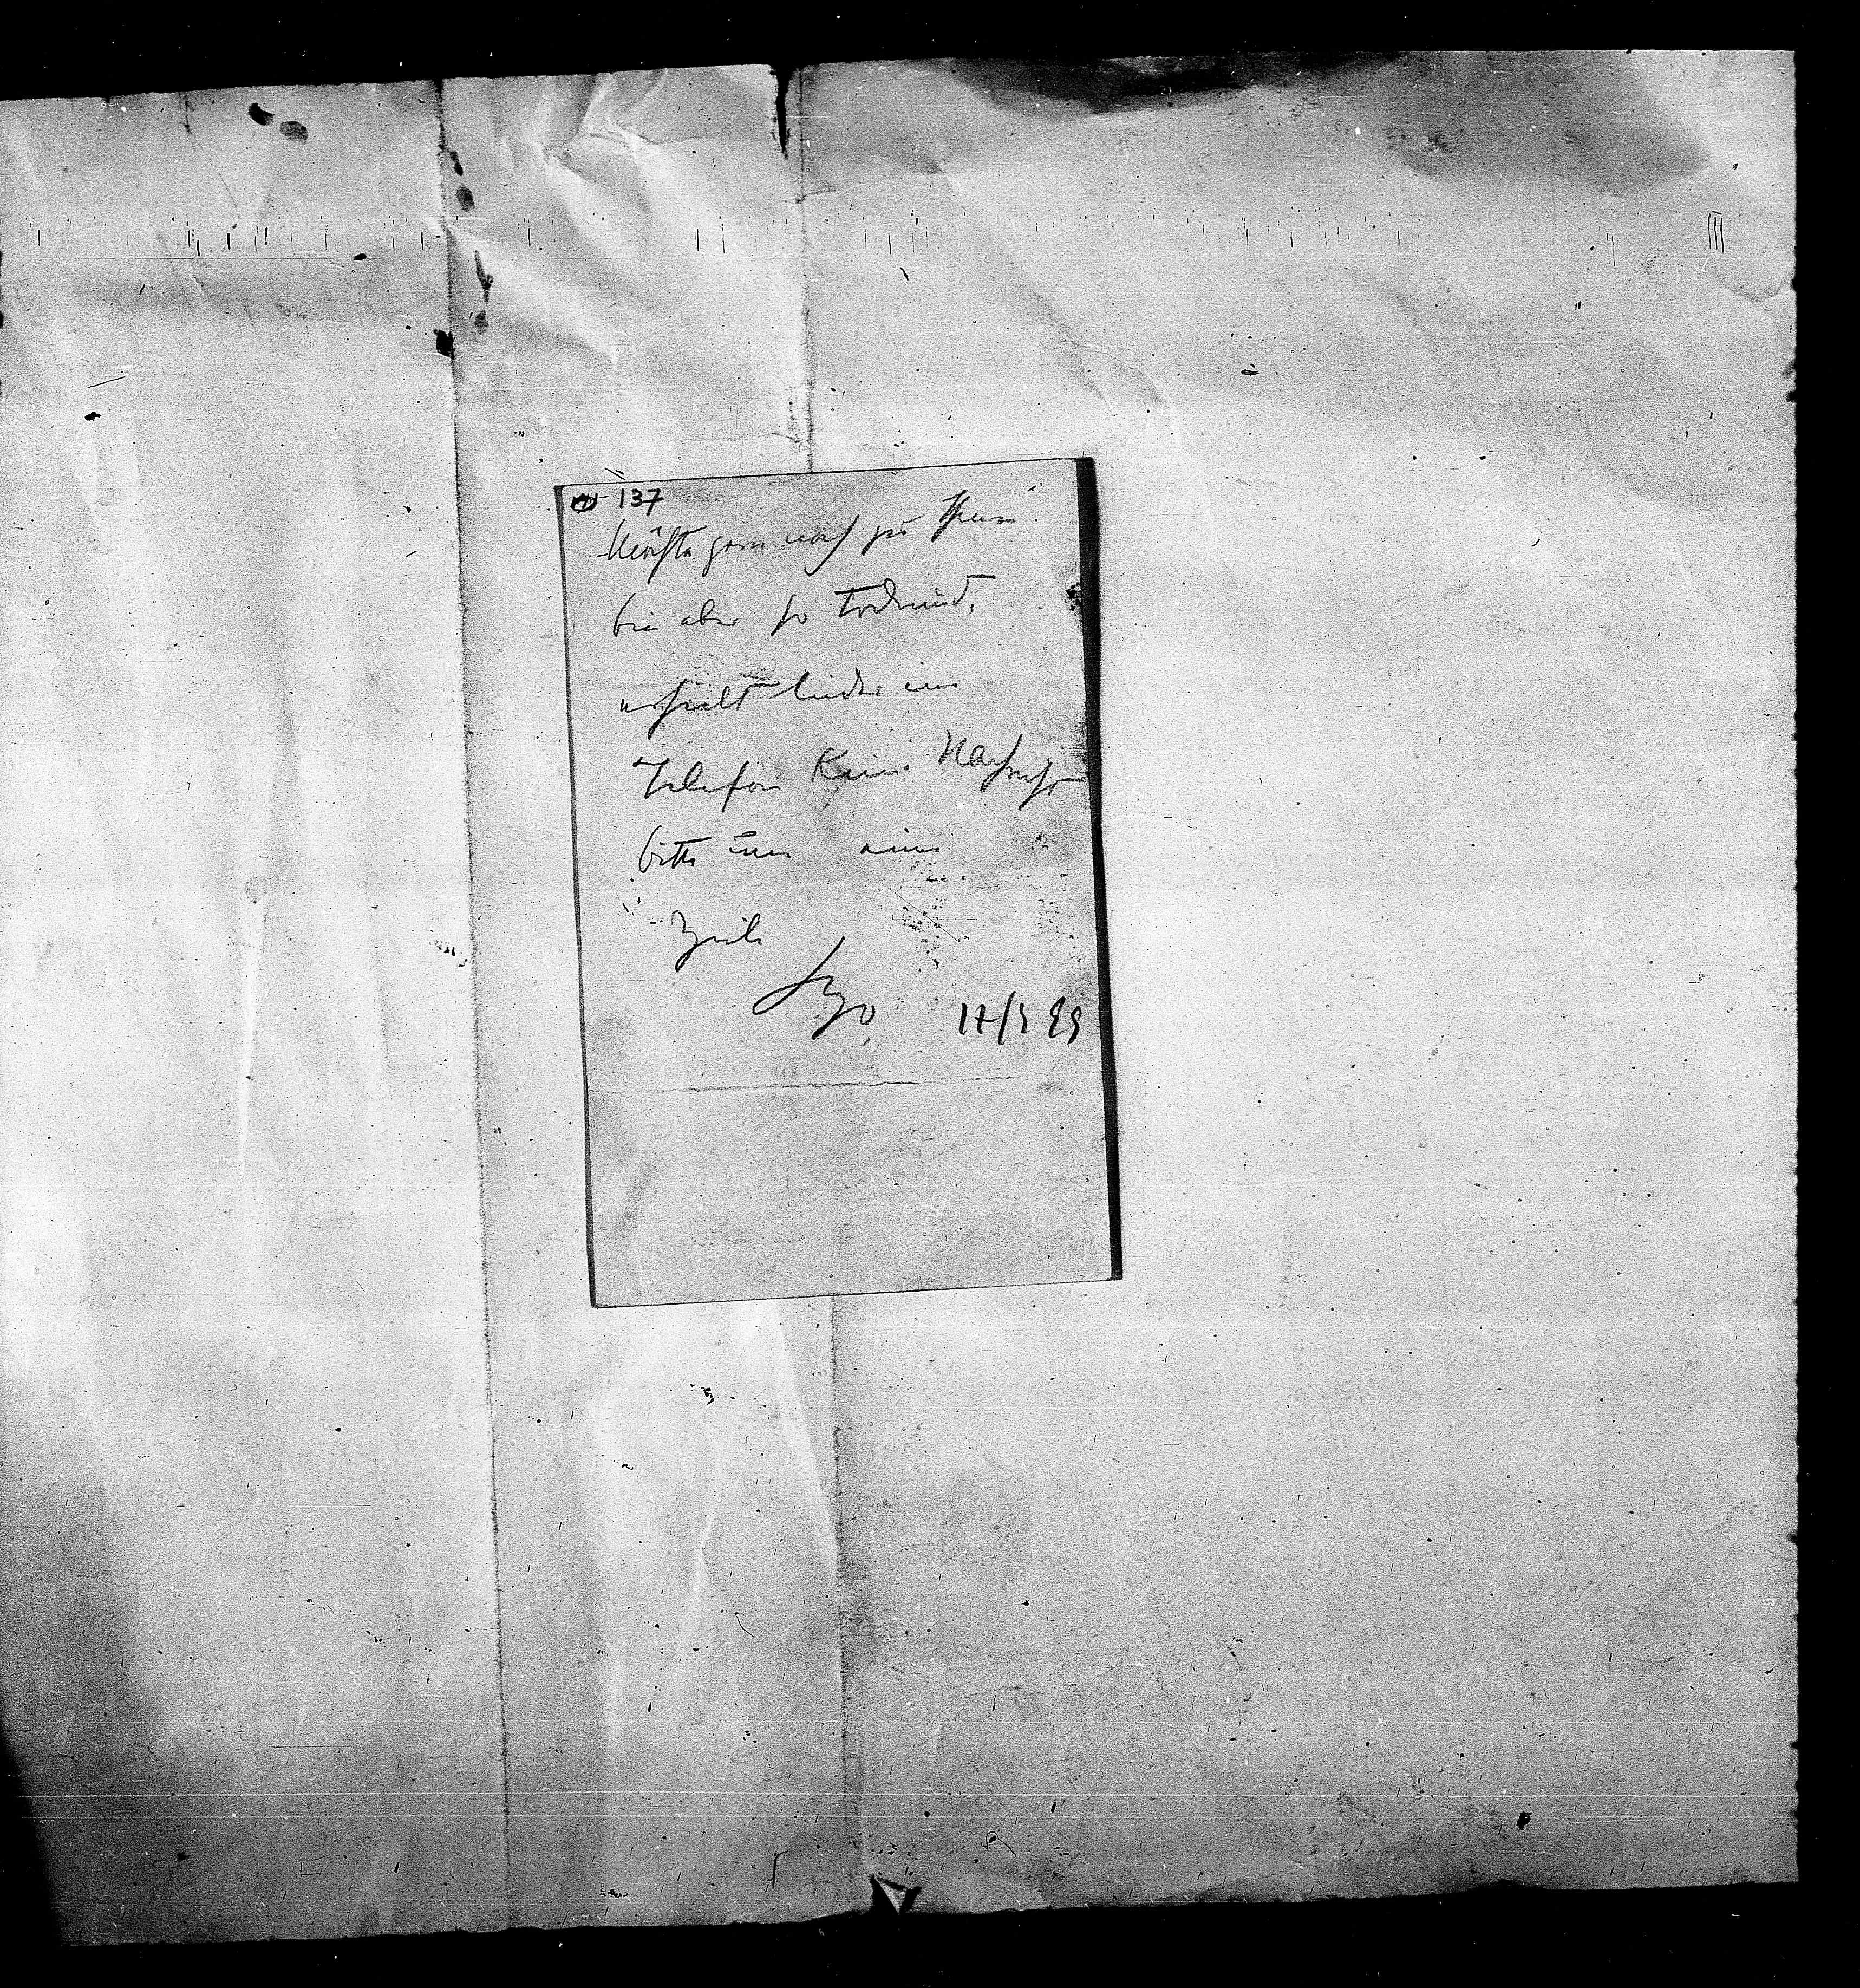 137
Möchte gern noch zu Ihnen
bin aber so todmüd,
erhielt leider im
Telefon keine Nachricht
bitte um eine
Zeile
Hugo 17/5 99